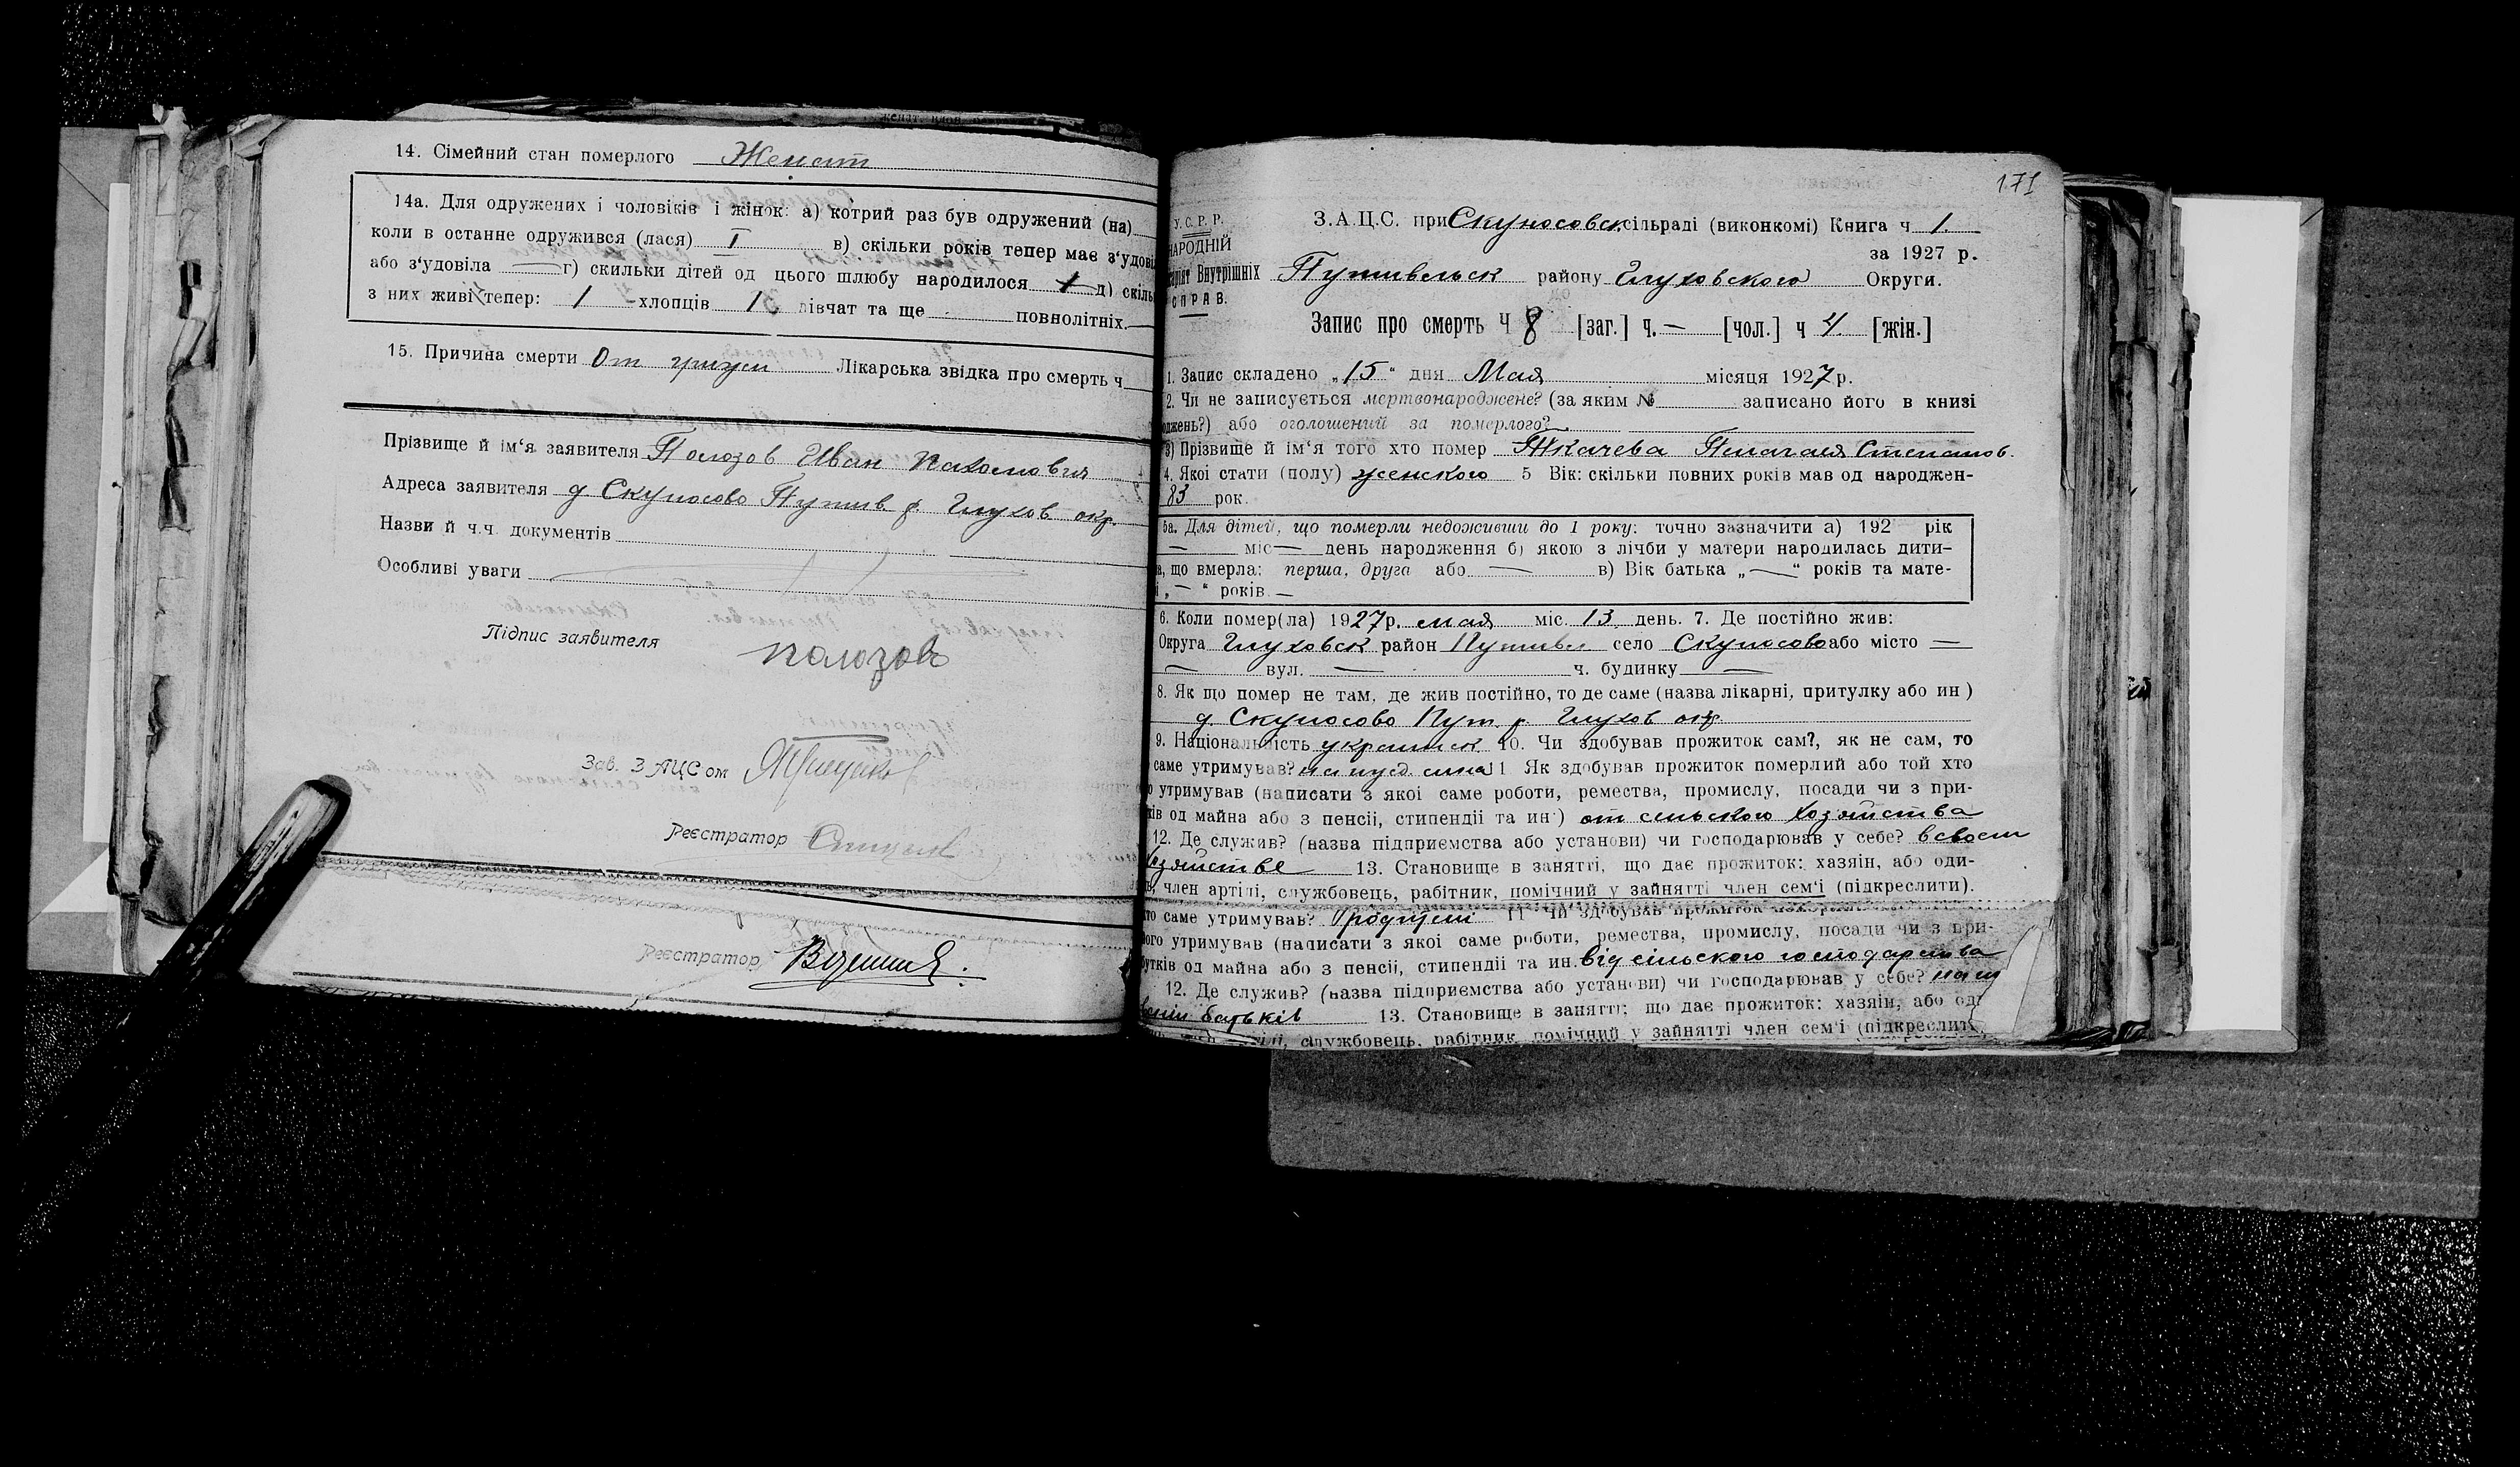 14. Сімейний стан померлого Женат
14а. Для одружених і чоловіків і жінок: а) котрий раз був одружений (на)
коли в останне одружився (лася) I в) скільки років тепер має з‘удові
або з‘удовіла — г) скильки дітей од цього шлюбу народилося д) скіль
з них живі тепер: 1 хлопців 1 дівчат та ще повнолітніх.
15. Причина смерти От Лікарська звідка про смерть ч
Прізвище й ім‘я заявителя Полозов Иван
Адреса заявителя д Скуносово Путив р. Глухов окр.
Назви й ч.ч. документів
Особливі уваги
Підпис заявителя полозов
Зав. ЗАЦСом
Реєстратор
Реєстратор
171
У.С.Р.Р.
НАРОДНІЙ
Внутрішніх
СПРАВ.
З.А.Ц.С. при Скуносовск сільраді (виконкомі) Книга ч 1.
за 1927 р.
Путивльск району Глуховского Округи.
Запис про смерть Ч 8 [заг.] ч. — [чол.] ч 4 [жін.]
1. Запис складено „15“ дня Мая місяця 1927 р.
2. Чи не записується мертвонароджене? (за яким № записано його в книзі
оджень?) або оголошений за померлого?
3) Прізвище й ім‘я того хто помер Ткачева Пелагея Степанов.
4. Якої стати (полу) женского 5 Вік: скільки повних років мав од народжен-
83 рок
5а. Для дітей, що померли недоживши до 1 року: точно зазначити а) 192 рік
— міс — день народження б) якою з лічби у матери народилась дити-
а, що вмерла: перша, друга або — в) Вік батька „—“ років та мате-
і „—“ років —
6. Коли помер(ла) 1927 р. мая міс. 13 день. 7. Де постійно жив:
Округа Глуховск район Путивл село Скуносово або місто —
— вул. — ч. будинку —
8. Як що помер не там, де жив постійно, то де саме (назва лікарні, притулку або ин )
д. Скуносово Пут. р. Глухов окр.
9. Національність украинск 10. Чи здобував прожиток сам?, як не сам, то
саме утримував? сина 11 Як здобував прожиток померлий або той хто
о утримував (написати з якої саме роботи, ремества, промислу, посади чи з при-
ків од майна або з пенсії, стипендії та ин ) от сельского хозяйства
12. Де служив? (назва підприємства або установи) чи господарював у себе? в своем
хозяйстве 13. Становище в занятті, що дає прожиток: хазяін, або оди-
член артілі, службовець, рабітник, помічний у зайнятті член сем‘і (підкреслити).
то саме утримував? 11 Чи здобував прожиток
ого утримував (написати з якої саме роботи, ремества, промислу, посади чи з при-
утків од майна або з пенсії, стипендії та ин. від сільського господарства
12. Де служив? (назва підприємства або установи) чи господарював у себе?
батьків 13. Становище в занятті; що дає прожиток: хазяін, або оди
службовець, рабітник, помічний у зайнятті член сем‘і (підкреслит